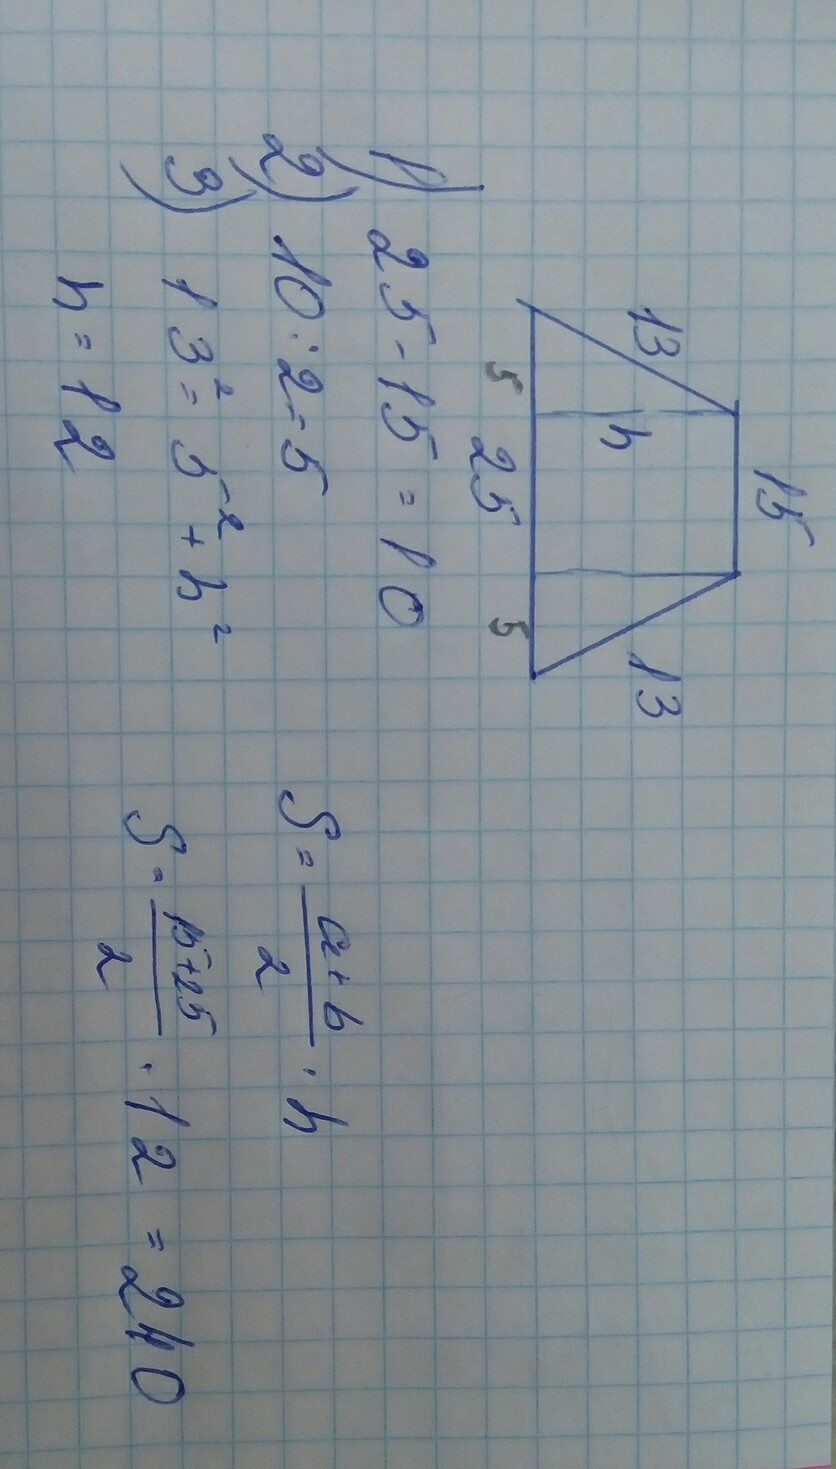 15
13 h 13
5 25 5
1) 25 - 15 = 10
2) 10 : 2 = 5
3) 13² = 5² + h²
h = 12
S = \frac{a+b}{2} · h
S = \frac{15+25}{2} · 12 = 240